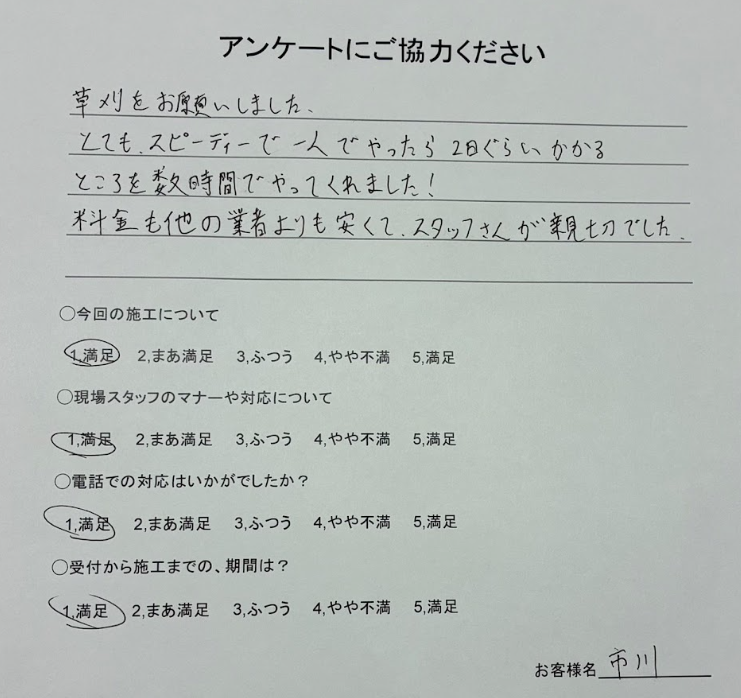 アンケートにご協力ください
草刈をお願いしました.
とても.スピーディーで一人でやったら2日ぐらいかかる
ところを数時間でやってくれました!
料金も他の業者よりも安くて.スタッフさんが親切でした.
〇今回の施工について
1,満足 2,まあ満足 3,ふつう 4,やや不満 5,満足
〇現場スタッフのマナーや対応について
1,満足 2,まあ満足 3,ふつう 4,やや不満 5,満足
〇電話での対応はいかがでしたか？
1,満足 2,まあ満足 3,ふつう 4,やや不満 5,満足
〇受付から施工までの、期間は？
1,満足 2,まあ満足 3,ふつう 4,やや不満 5,満足
お客様名 市川